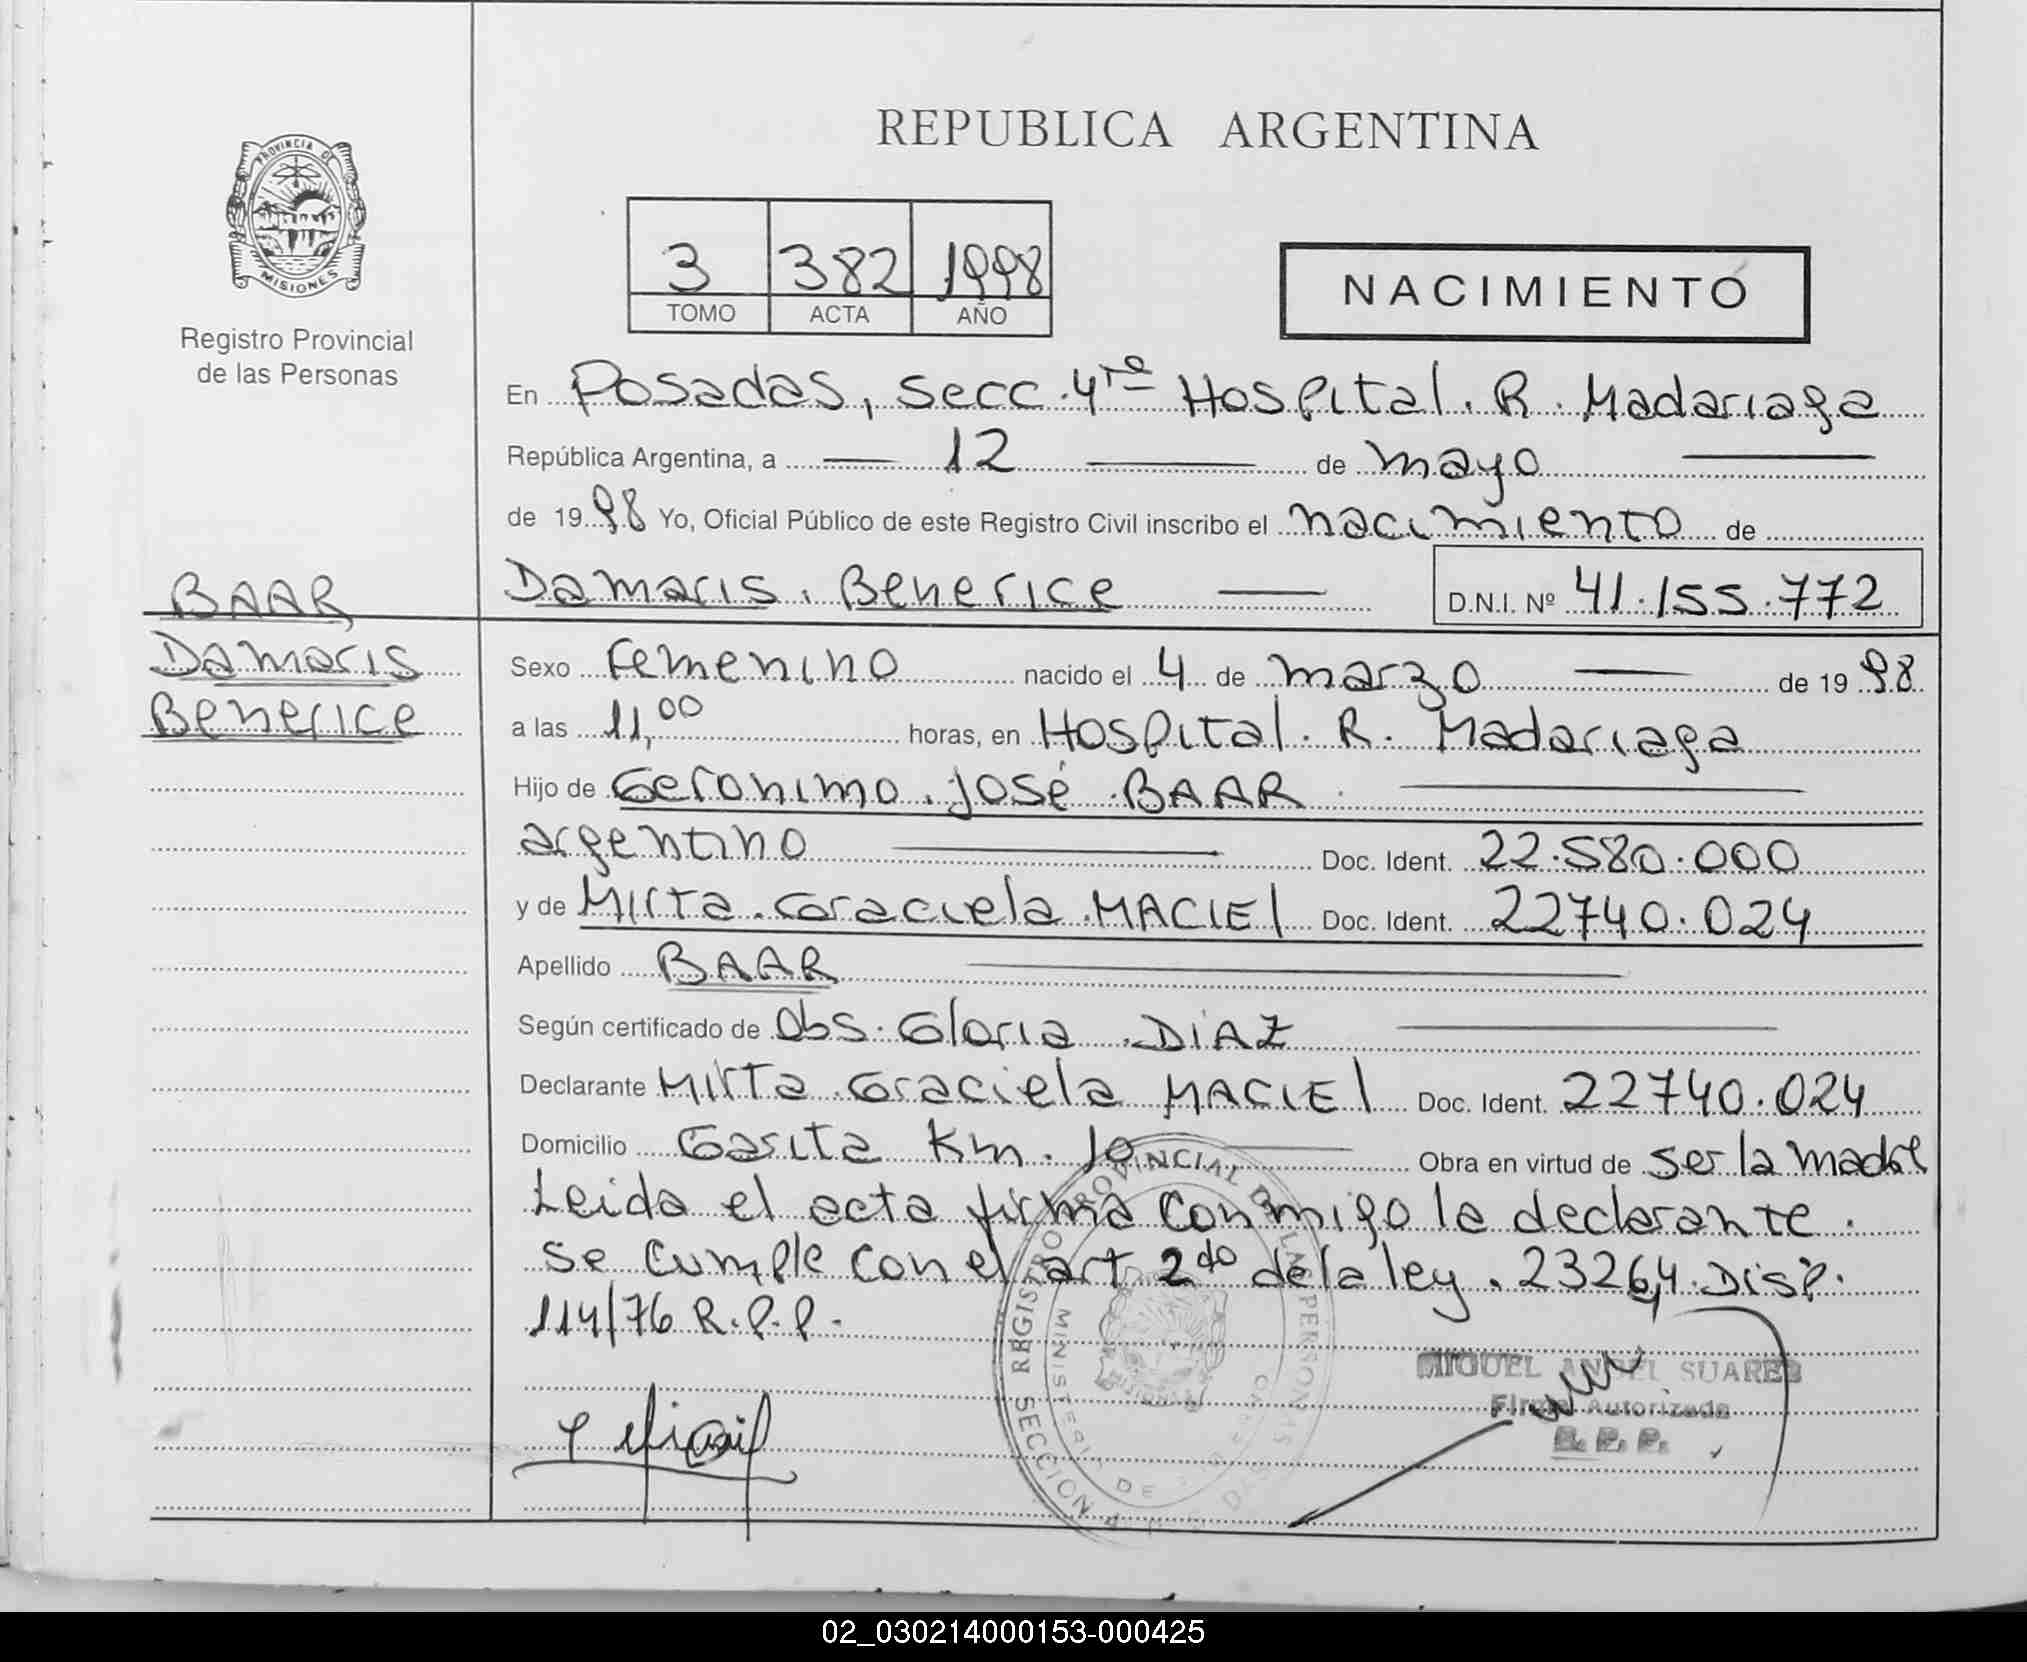 REPUBLICA ARGENTINA
PROVINCIA DE
MISIONES
Registro Provincial
de las Personas
3 382 1998
TOMO ACTA AÑO
NACIMIENTO
En Posadas, secc. 4ta Hospital. R. Madariaga
República Argentina, a — 12 — de mayo —
de 1998 Yo, Oficial Público de este Registro Civil inscribo el nacimiento de
BAAR
Damaris
Benerice
Damaris. Benerice — D.N.I. Nº 41.155.772
Sexo femenino nacido el 4 de marzo — de 1998
a las 11,00 horas, en Hospital. R. Madariaga
Hijo de Geronimo. José. BAAR —
argentino — Doc. Ident. 22.580.000
y de Mirta. Graciela. MACIEl Doc. Ident. 22740.024
Apellido BAAR —
Según certificado de Obs. Gloria. DIAZ —
Declarante Mirta. Graciela MACIEl Doc. Ident. 22740.024
Domicilio Garita Km. 10 — Obra en virtud de ser la madre
Leida el acta firma conmigo la declarante.
se cumple con el art 2do de la ley. 23264. Disp.
114/76 R.P.P.
REGISTRO PROVINCIAL DE LAS PERSONAS
SECCION 4
MINISTERIO DE
MIGUEL ANGEL SUAREZ
Firma Autorizada
R. P. P.
02_030214000153-000425